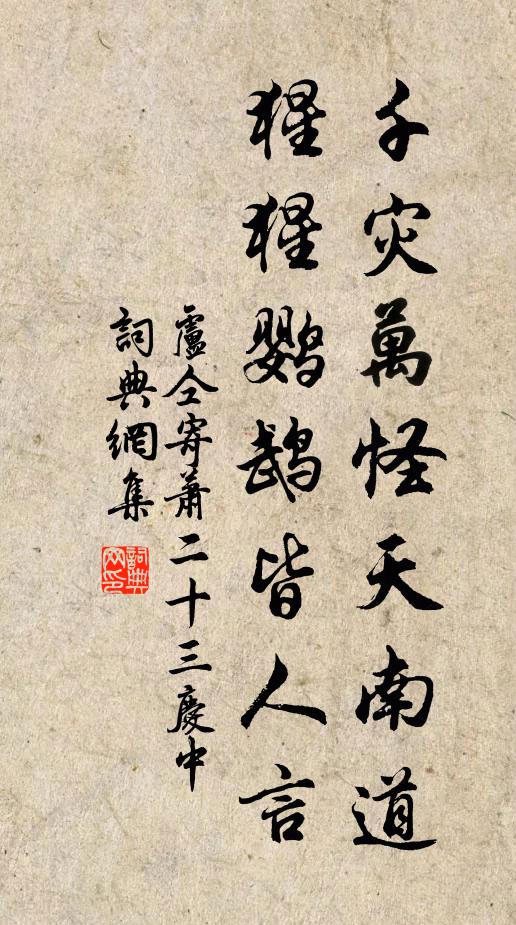 千灾萬怪天南道
猩猩鹦鵡皆人言
盧仝寄蕭二十三慶中
詞典網集
詞典網印